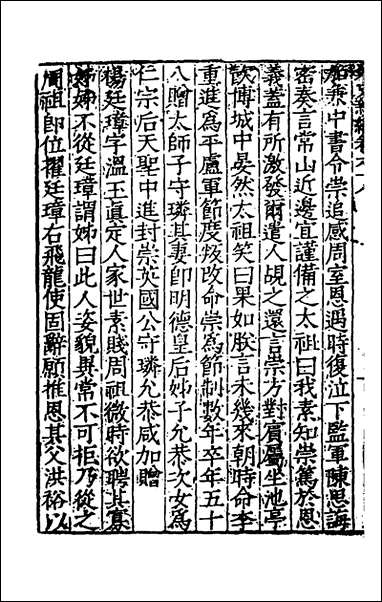 加兼中書令崇追感周室恩遇時復泣下監軍陳思誨
密奏言常山近邊宜謹備之太祖曰我素知崇篤於恩
義蓋有所激發爾遣人覘之還言崇方對賓屬坐池亭
飲博城中晏然太祖笑曰果如朕言未幾來朝時命李
重進爲平盧軍節度叛改命崇爲節制數年卒年五十
八贈太師子守璘其妻卽明德皇后姊子允恭次女爲
仁宗后天聖中進封崇英國公守璘允恭咸加贈
楊廷璋字溫王眞定人家世素賤周祖微時欲聘其寡
姊姊不從廷璋謂姊曰此人姿貌異常不可拒乃從之
周祖卽位擢廷璋右飛龍使固辭願推恩其父洪裕以